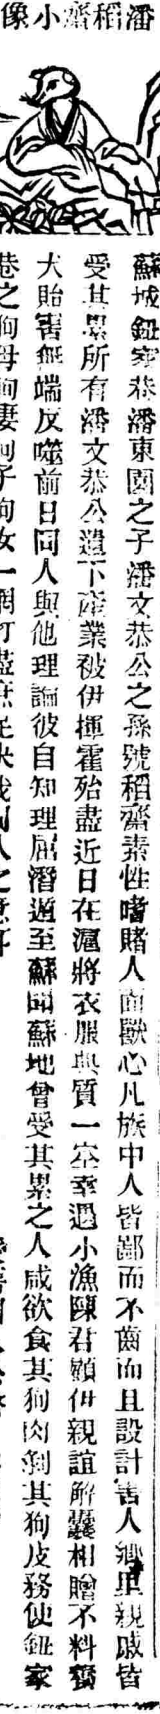 潘稻齋小像
蘇城鈕家巷潘東園之子潘文恭公之孫號稻齋素性嗜賭人面獸心凡族中人皆鄙而不齒而且設計害人鄉里親戚皆
受其累所有潘文恭公遺下產業被伊揮霍殆盡近日在滬將衣服典質一空幸遇小漁陳君顧伊親誼解囊相贈不料瘈
犬貽害無端反噬前日同人與他理論彼自知理屈潛遁至蘇聞蘇地曾受其累之人咸欲食其狗肉剝其狗皮務使鈕家
巷之狗母狗妻狗子狗女一網打盡庶